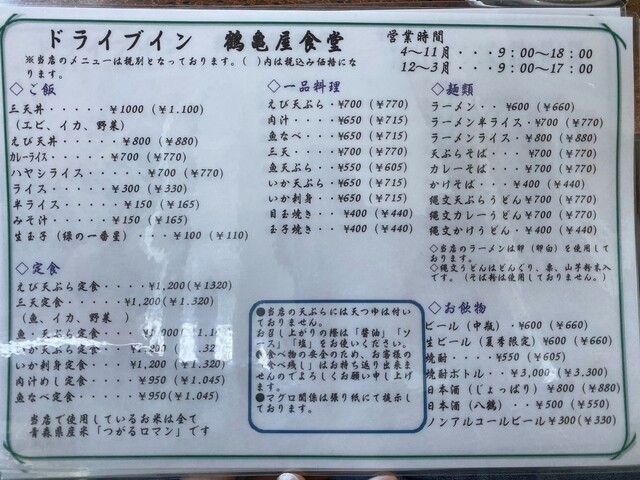 ドライブイン 鶴亀屋食堂
営業時間
4～11月・・・9：00～18：00
12～3月・・・9：00～17：00
※当店のメニューは税別となっております。( )内は税込み価格になります。
◇ご飯
三天丼・・・・・¥1000(¥1.100)
(エビ、イカ、野菜)
えび天丼・・・・¥800(¥880)
カレーライス・・・・¥700(¥770)
ハヤシライス・・・・¥700(¥770)
ライス・・・・・¥300(¥330)
半ライス・・・・¥150(¥165)
みそ汁・・・・・¥150(¥165)
生玉子(緑の一番星)・・・¥100(¥110)
◇定食
えび天ぷら定食・・・・¥1,200(¥1320)
三天定食・・・・¥1,200(¥1.320)
(魚、イカ、野菜 )
魚 天ぷら定食
いか天ぷら定食
いか刺身定食・・・・¥1.200(¥1.320)
肉汁めし定食・・・・¥950(¥1.045)
魚なべ定食・・・・・¥950(¥1.045)
当店で使用しているお米は全て
青森県産米「つがるロマン」です
◇一品料理
えび天ぷら・¥700(¥770)
肉汁・・・・¥650(¥715)
魚なべ・・・¥650(¥715)
三天・・・・¥700(¥770)
魚天ぷら・・¥550(¥605)
いか天ぷら・¥650(¥715)
いか刺身・・¥650(¥715)
目玉焼き・・¥400(¥440)
玉子焼き・・¥400(¥440)
●当店の天ぷらには天つゆは付いておりません。
お召し上がりの際は「醤油」「ソース」「塩」をお使いください。
●食べ物の安全のため、お客様の「食べ残し」はお持ち返り出来ませんのでよろしくお願い申し上げます。
●マグロ関係は張り紙にて提示しております。
◇麺類
ラーメン・・・¥600(¥660)
ラーメン半ライス・¥700(¥770)
ラーメンライス・・¥800(¥880)
天ぷらそば・・・・¥700(¥770)
カレーそば・・・・¥700(¥770)
かけそば・・・・¥400(¥440)
縄文天ぷらうどん¥700(¥770)
縄文カレーうどん¥700(¥770)
縄文かけうどん・・¥400(¥440)
◇当店のラーメンは卵(卵白)を使用しております。
◇縄文うどんはどんぐり、栗、山芋粉末入です。(そば粉は使用しておりません。)
◇お飲物
ビール(中瓶)・¥600(¥660)
生ビール(夏季限定)¥600(¥660)
焼酎・・・・・¥550(¥605)
焼酎ボトル・・・¥3,000(¥3.300)
日本酒(じょっぱり)¥800(¥880)
日本酒(八鶴)・・¥500(¥550)
ノンアルコールビール¥300(¥330)